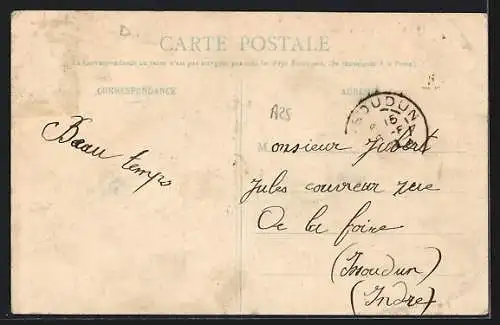 D.
CARTE POSTALE
La Correspondance au recto n'est pas acceptée par tous les Pays Étrangers. (Se renseigner à la Poste)
CORRESPONDANCE
A25
ISSOUDUN
15
Beau temps
Monsieur Jubert
Jules couvreur rue
De la foire
(Issoudun)
(Indre)